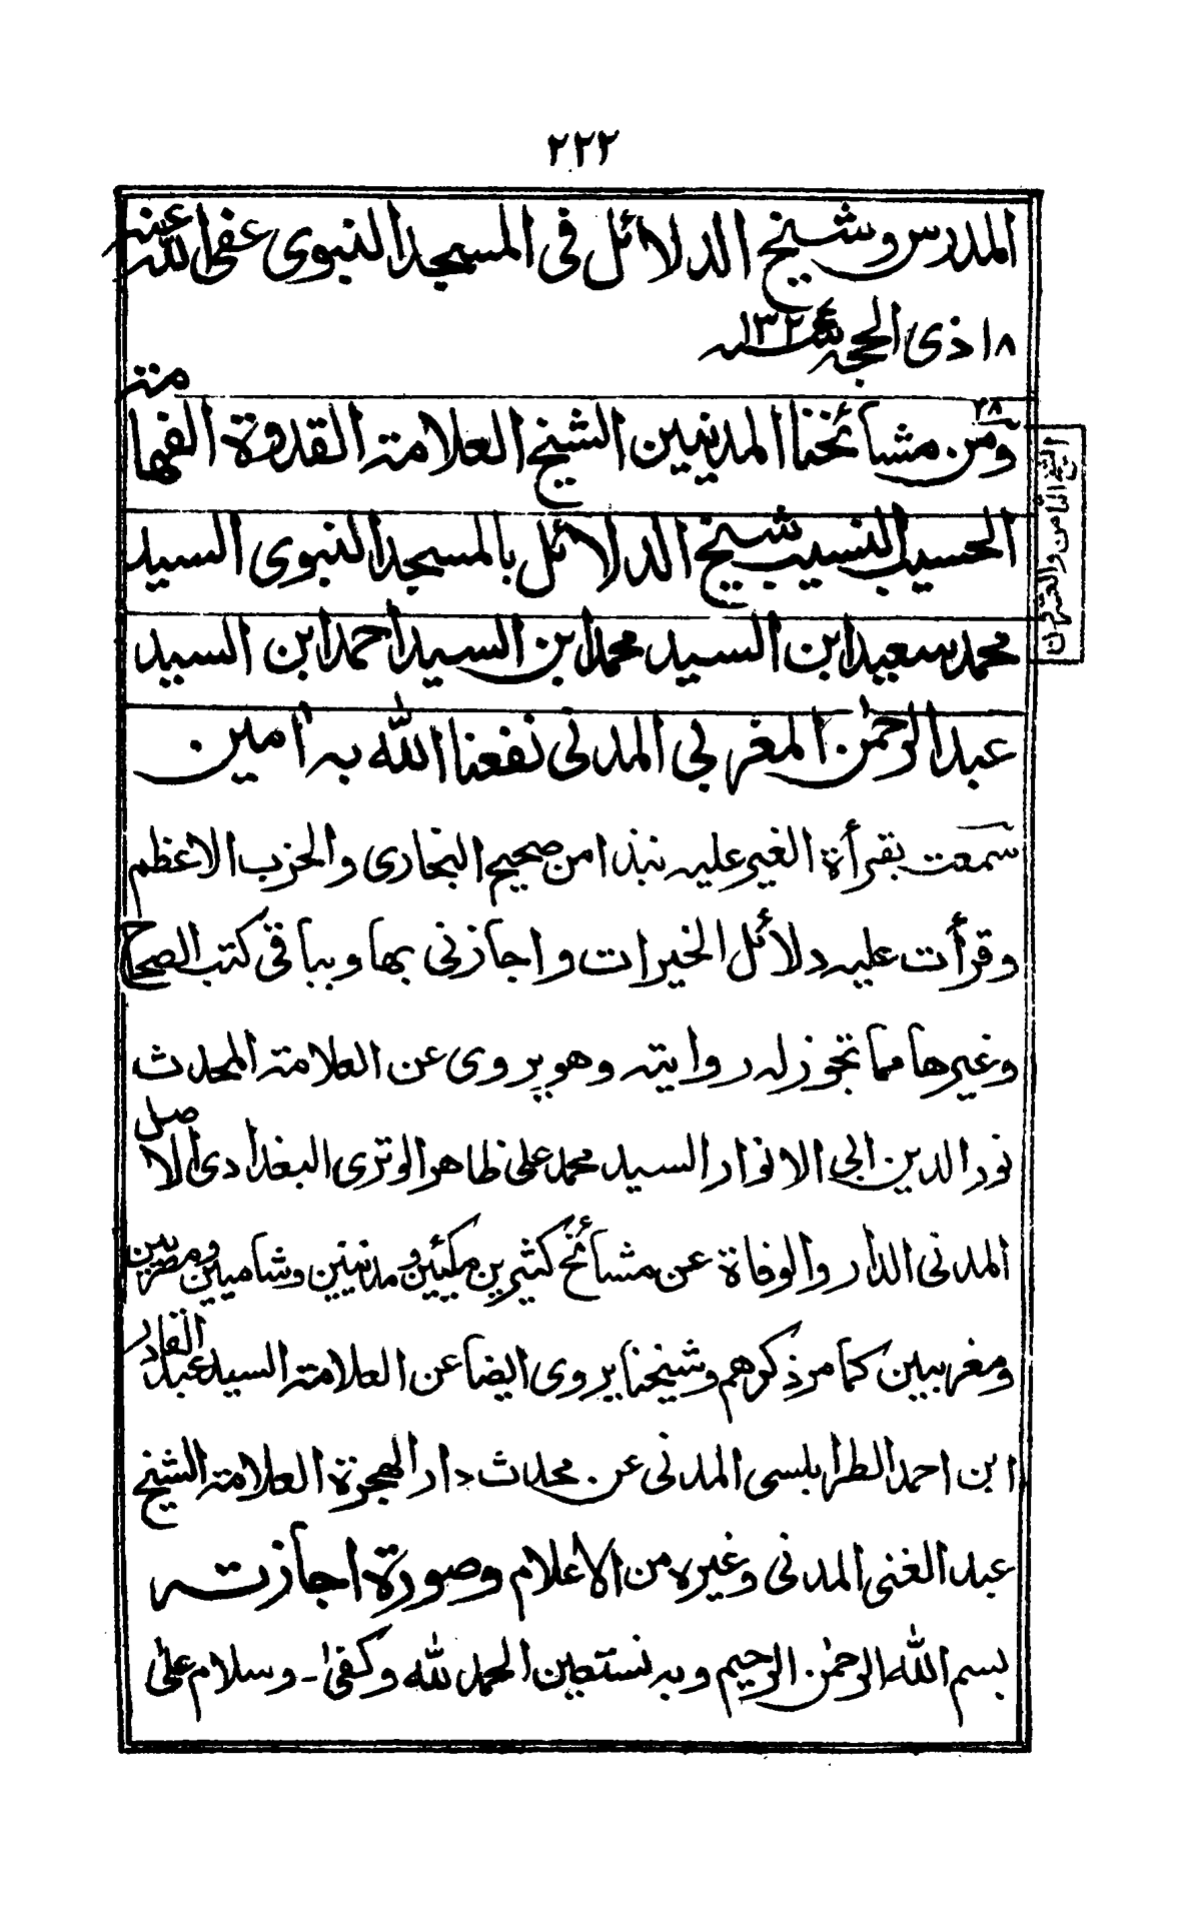 ٢٢٢
المدرس وشيخ الدلائل فى المسجد النبوى عفى الله عنه
١٨ ذى الحجه سنه
٢٨
ومن مشائخنا المدنيين الشيخ العلامة القدوة الفهامة
الحسيب النسيب شيخ الدلائل بالمسجد النبوى السيد
محمد سعيد ابن السيد محمد ابن السيد احمد ابن السيد
عبد الرحمٰن المغربى المدنى نفعنا الله به اٰمين
الشيخ الثامن والعشرون
سمعت بقرأة الغير عليه نبذا من صحيح البخارى والحزب الاعظم
وقرأت عليه دلائل الخيرات واجازنى بها وبباقى كتب الصحاح
وغيرها مما تجوز له روايته وهو يروى عن العلامة المحدث
نور الدين ابى الانوار السيد محمد على ظاهر الوترى البغدادى الاصل
المدنى الدار والوفاة عن مشائخ كثيرين مكيين ومدنيين وشاميين ومصريين
ومغربيين كما مر ذكرهم وشيخنا يروى ايضا عن العلامة السيد عبد القادر
ابن احمد الطرابلسى المدنى عن محدث دار الهجرة العلامة الشيخ
عبد الغنى المدنى وغيره من الاعلام وصورة اجازته
بسم الله الرحمٰن الرحيم وبه نستعين الحمد لله وكفىٰ - وسلام علىٰ